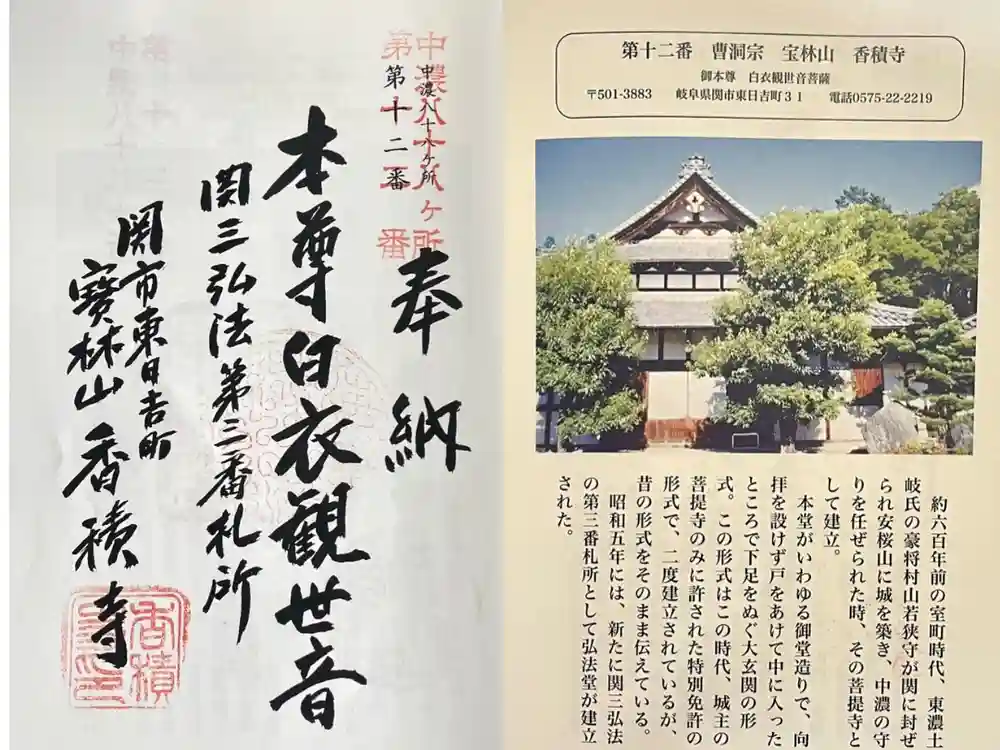 中濃八十八ケ所
第十二番
中濃八十八ケ所
第十二番
奉納
本尊白衣観世音
関三弘法第三番札所
関市東日吉町
寳林山 香積寺
第十二番 曹洞宗 宝林山 香積寺
御本尊 白衣観世音菩薩
〒501-3883 岐阜県関市東日吉町31 電話0575-22-2219
約六百年前の室町時代、東濃土
岐氏の豪将村山若狭守が関に封ぜ
られ安桜山に城を築き、中濃の守
りを任ぜられた時、その菩提寺と
して建立。
本堂がいわゆる御堂造りで、向
拝を設けず戸をあけて中に入った
ところで下足をぬぐ大玄関の形
式。この形式はこの時代、城主の
菩提寺のみに許された特別免許の
形式で、二度建立されているが、
昔の形式をそのまま伝えている。
昭和五年には、新たに関三弘法
の第三番札所として弘法堂が建立
された。